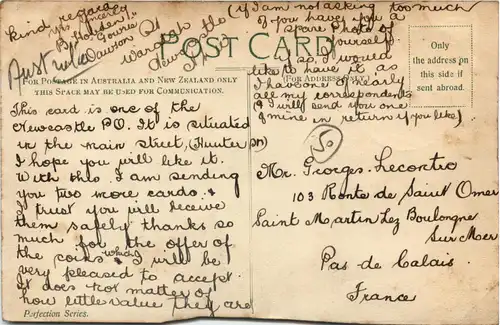 (if I am not asking too much
of you have you a
spare Photo of
yourself
if so, I would
like to have it as
I have one of nearly
all my correspondents
& I will send you one
of mine in return if you like).
kind regards
yrs sincerely
Dawson St
Waratah
Newcastle
Australia
POST CARD
FOR POSTAGE IN AUSTRALIA AND NEW ZEALAND ONLY
THIS SPACE MAY BE USED FOR COMMUNICATION.
Only
the address on
this side if
sent abroad.
This card is one of the
Newcastle PO. It is situated
in the main street, (Hunter on)
I hope you will like it.
With this I am sending
you two more cards &
I trust you will receive
them safely thanks so
much for the offer of
the coins which I will be
very pleased to accept.
It does not matter of
how little value they are
50
Mr. Georges Lecontre
103 Route de Saint Omer
Saint Martin Lez Boulongne
Sur Mer
Pas de Calais.
France
Perfection Series.